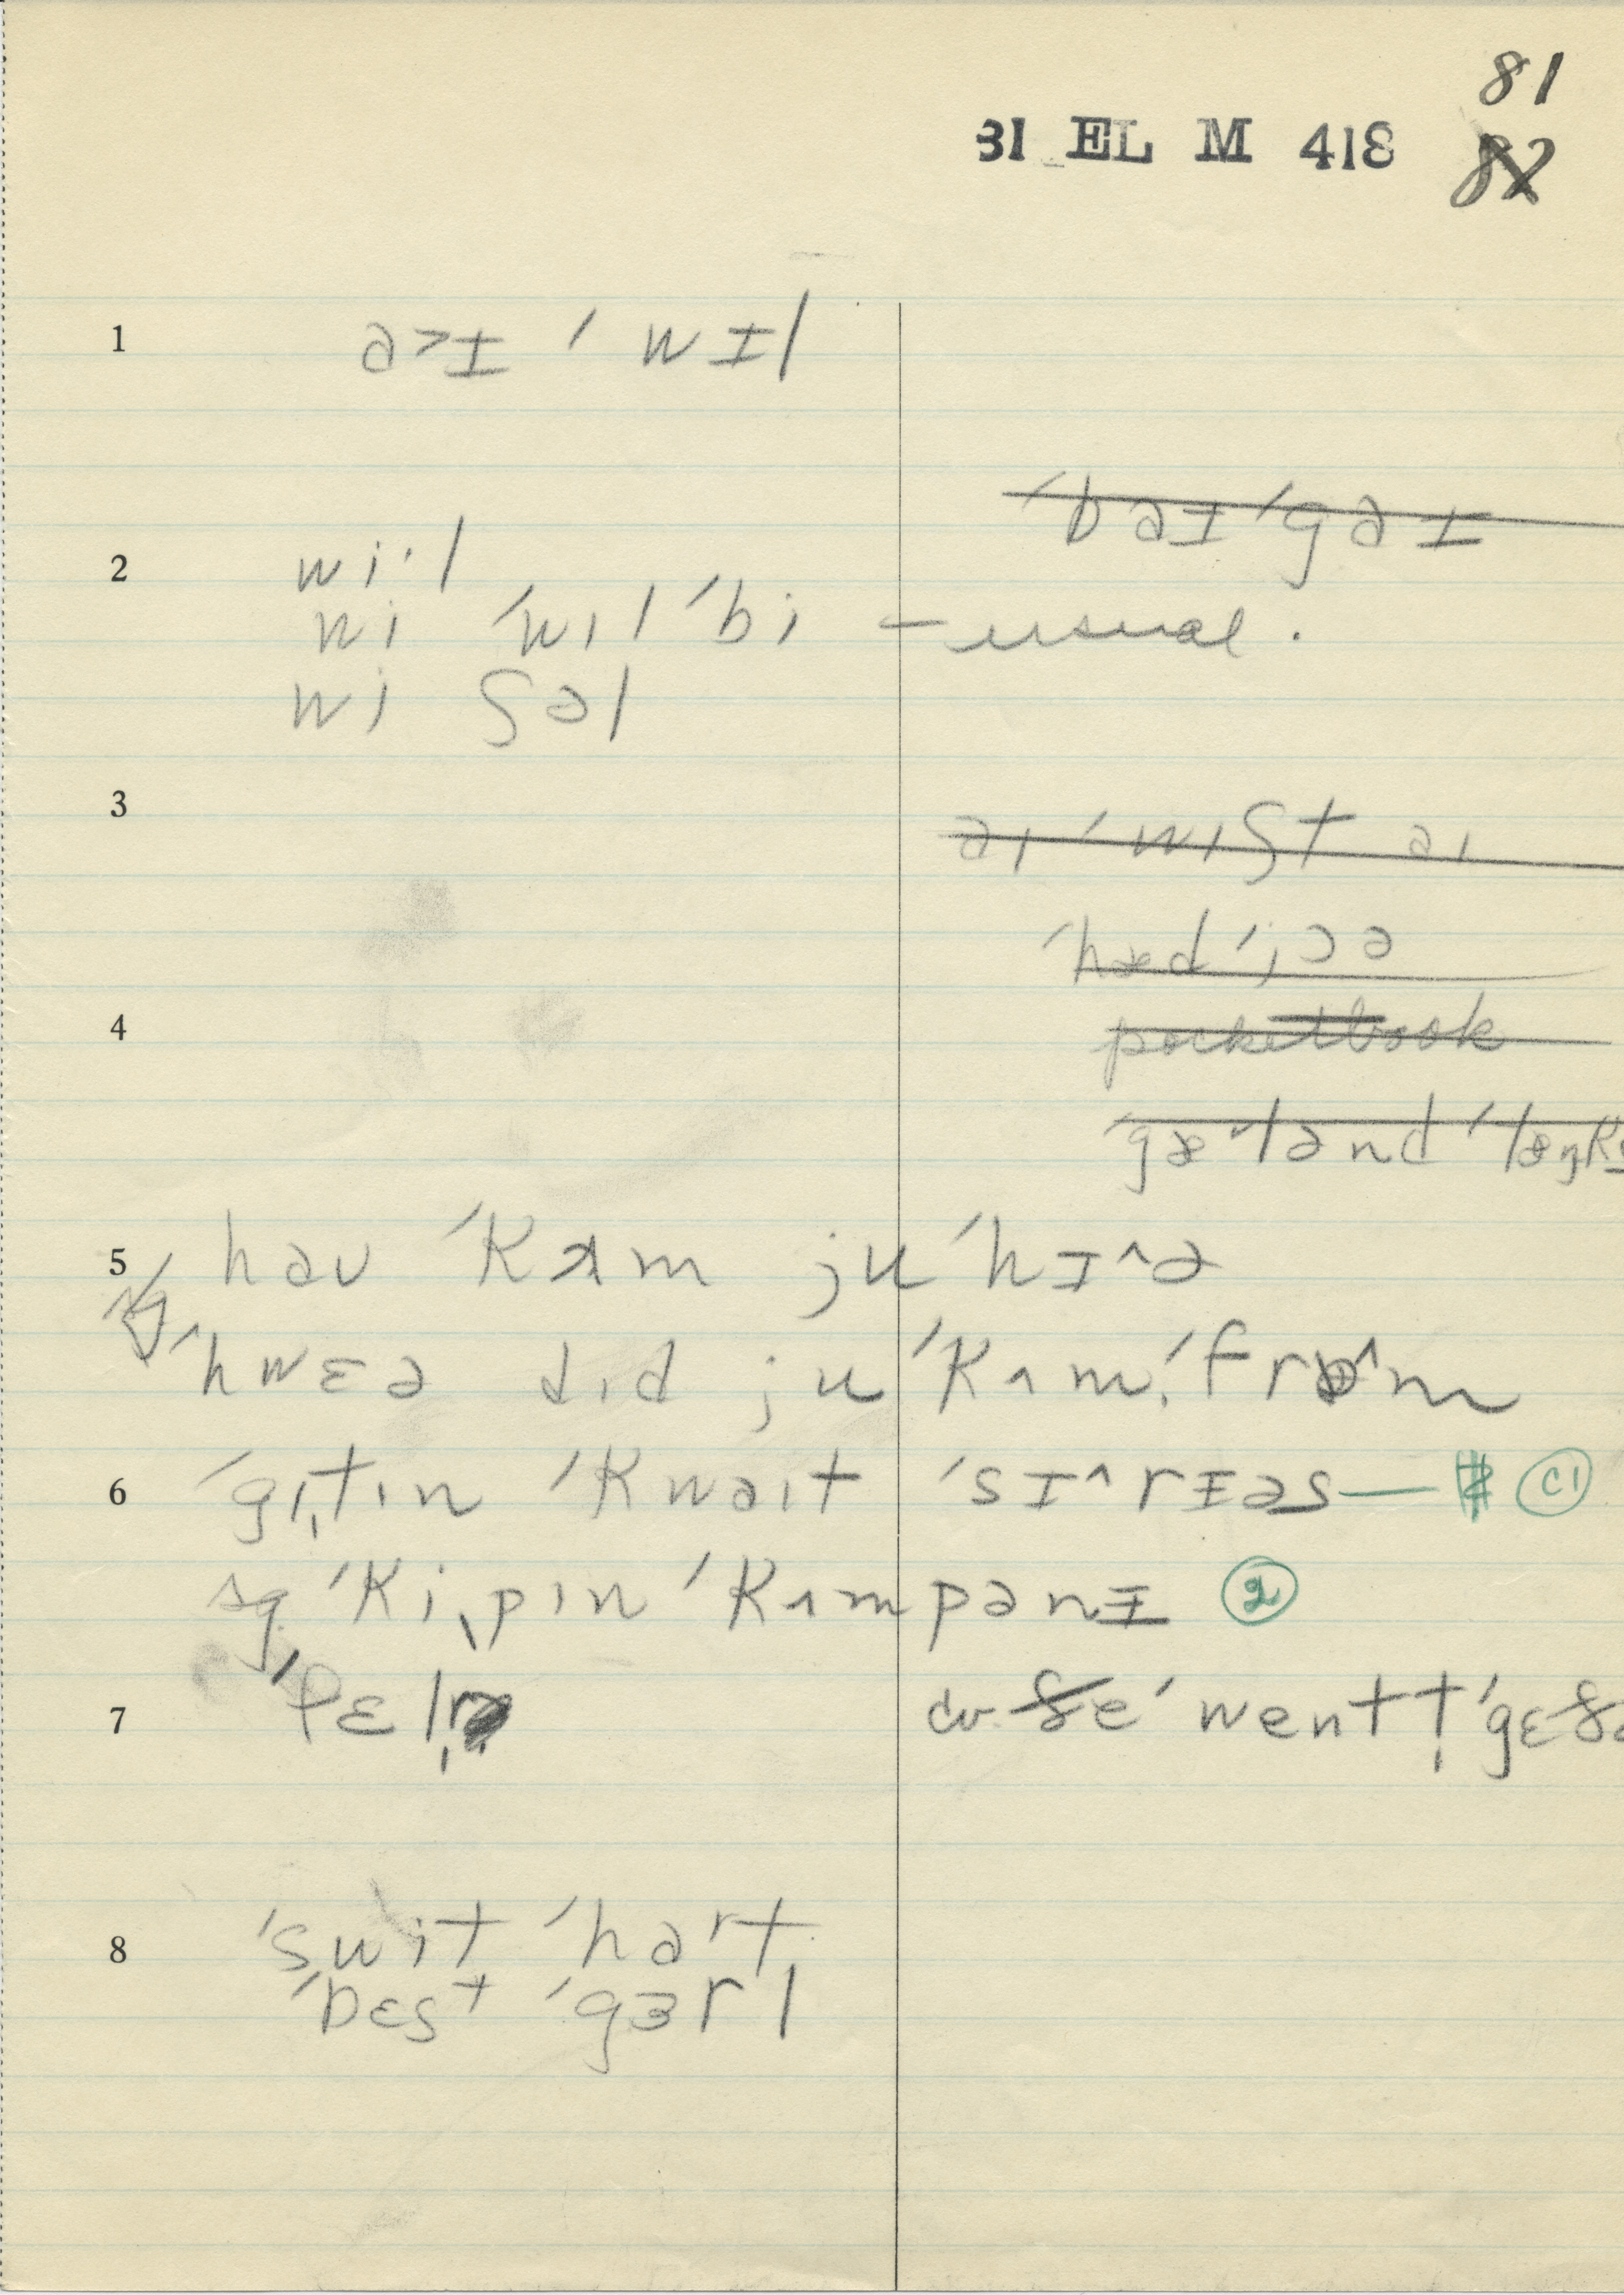 81
31 EL M 418 ~~82~~
1 ə>ɪ ˈwɪl
~~ˈbəɪ ˈgəɪ~~
2 wi·l
wi ˈwɪl ˈbi — usual.
wi ʃəl
3
~~əɪ ˈwɪʃt əɪ~~
~~ˈhæd ˈjɔə~~
4 ~~pocketbook~~
~~ˈgæ˅lənd ˈlæŋks~~
5 həʊ ˈkʌm ju ˈhɪ^ə
ˈhwɛə dɪd ju ˈkʌm ˈfrɒ^m
6 ˈgɪt̩ɪn ˈkwəɪt ˈsɪ^rɪəs — C1
ˈki̩pɪn ˈkʌmpənɪ 2
7 ˈfɛl
ˈwent t̩ ˈgɛ
8 ˈswit ˈhaʳt
ˈbɛst ˈgɜrl